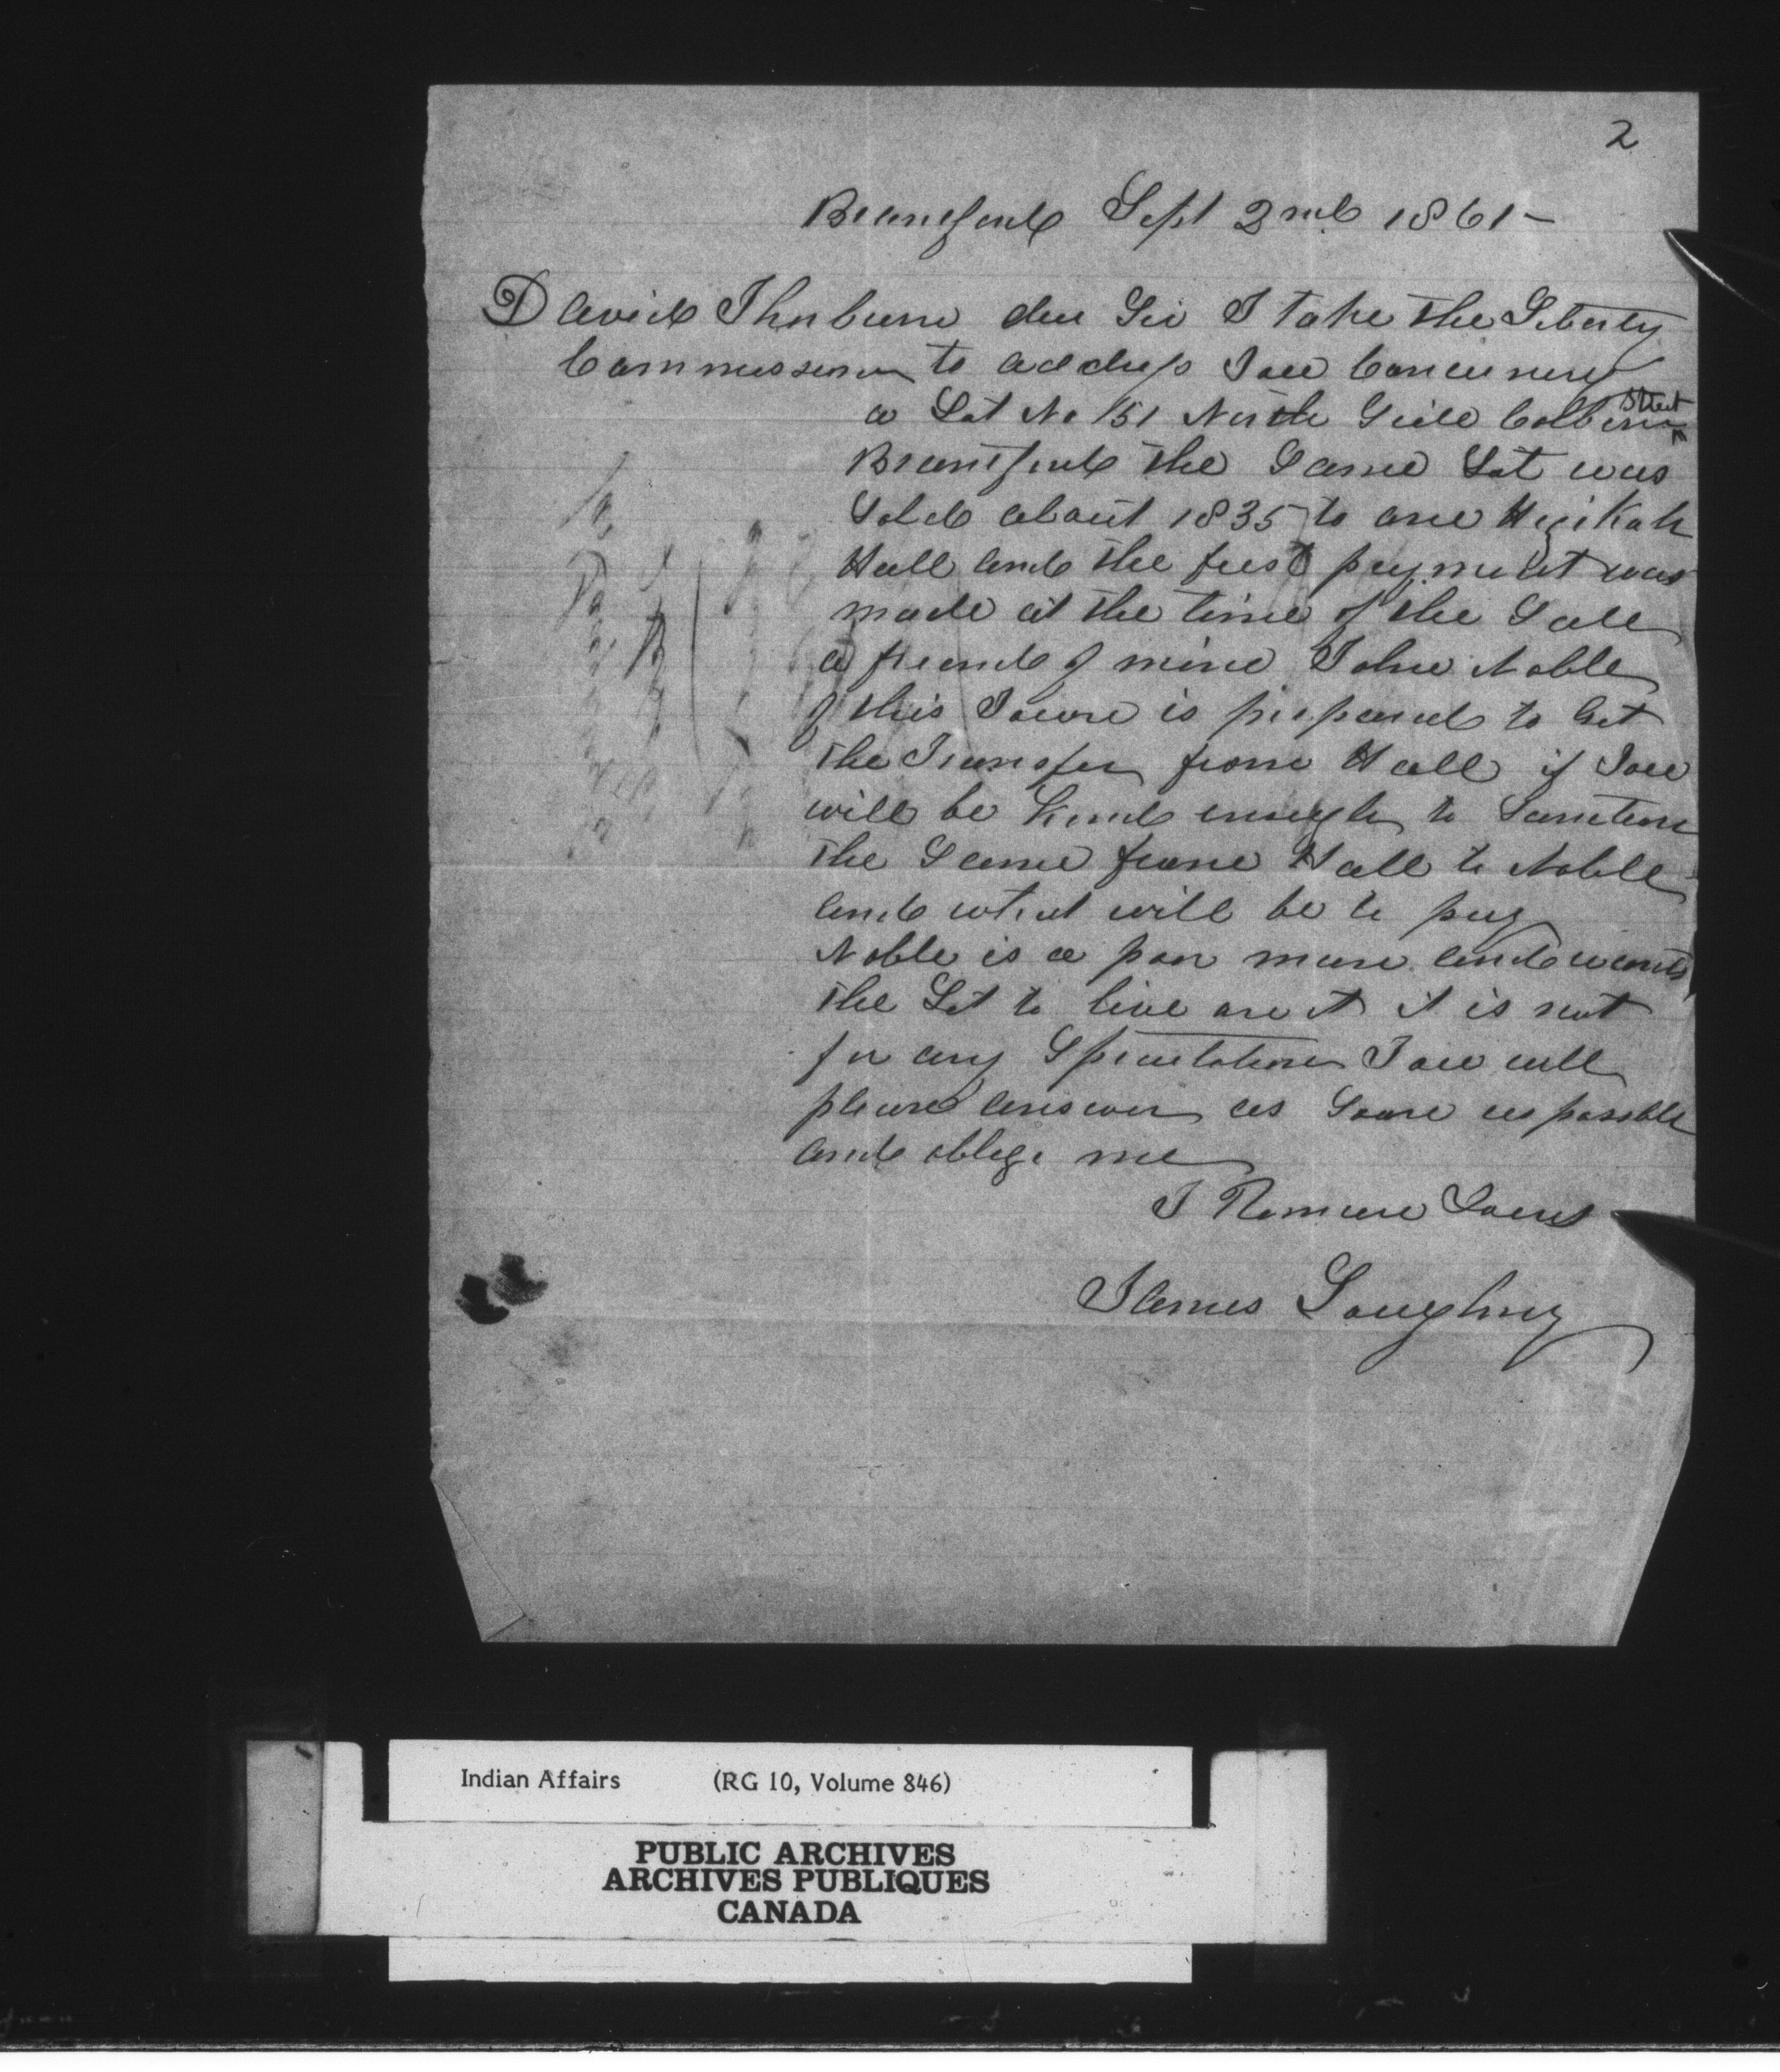 2
Brantford Sept 2nd 1861-
David Thorburn dear Sir I take the Liberty
Commissioner to address You Concerning
a Lot No 151 North Side Colborn Street
Brantford the Same Lot was
Sold about 1835 to one Hezikah
Hall and the first payment was
made at the time of the Sale
a friend of mine John Noble
of this Town is prepared to Get
the Transfer from Hall if You
will be kind enough to Sanction
the Same from Hall to Noble
and what will be to pay
Noble is a poor man and wants
the Lot to live on it it is not
for any Speculation You will
please answer as Soon as possible
and oblige me
I Remain Yours
James Loughrey
Indian Affairs (RG 10, Volume 846)
PUBLIC ARCHIVES
ARCHIVES PUBLIQUES
CANADA